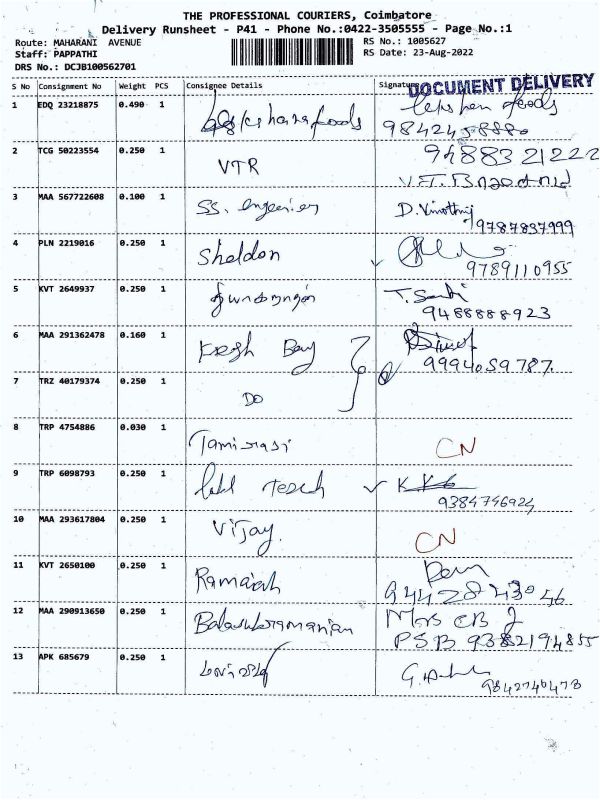 THE PROFESSIONAL COURIERS, Coimbatore
Delivery Runsheet - P41 - Phone No.:0422-3505555 - Page No.:1
Route: MAHARANI AVENUE
RS No.: 1005627
Staff: PAPPATHI
RS Date: 23-Aug-2022
DRS No.: DCJB100562701
S No Consignment No Weight PCS Consignee Details Signature
DOCUMENT DELIVERY
1 EDQ 23218875 0.490 1 foods foods
2 TCG 50223554 0.250 1 VTR 9488321222
3 MAA 567722608 0.100 1 SS. D.
9787837999
4 PLN 2219016 0.250 1 Sheldon
9789110955
5 KVT 2649937 0.250 1 T.
9488888923
6 MAA 291362478 0.160 1
9994059787.
7 TRZ 40179374 0.250 1 DO
8 TRP 4754886 0.030 1 CN
9 TRP 6098793 0.250 1
9384746924
10 MAA 293617804 0.250 1 Vijay. CN
11 KVT 2650100 0.250 1 Ramaiah
9442843046
12 MAA 290913650 0.250 1 Balasubramanian
PSB 9382194855
13 APK 685679 0.250 1 G.
9842740478